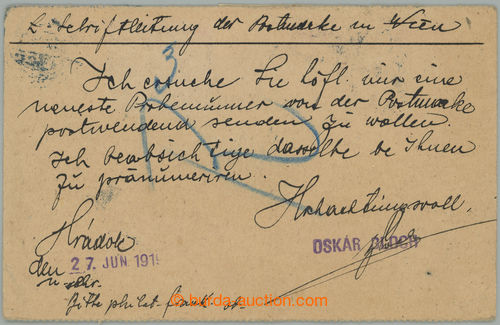 L. Schriftleitung der Postmarke in Wien
Ich ersuche Sie höfl. mir eine
neueste Probenummer von der Postmarke
postwendend senden zu wollen.
Ich beabsichtige dasselbe be Ihnen
zu pränumeriren.
Hochachtungsvoll,
Hrádok
OSKÁR
den 27. JUN 191
Bitte philat. frank
© burda-auction.com